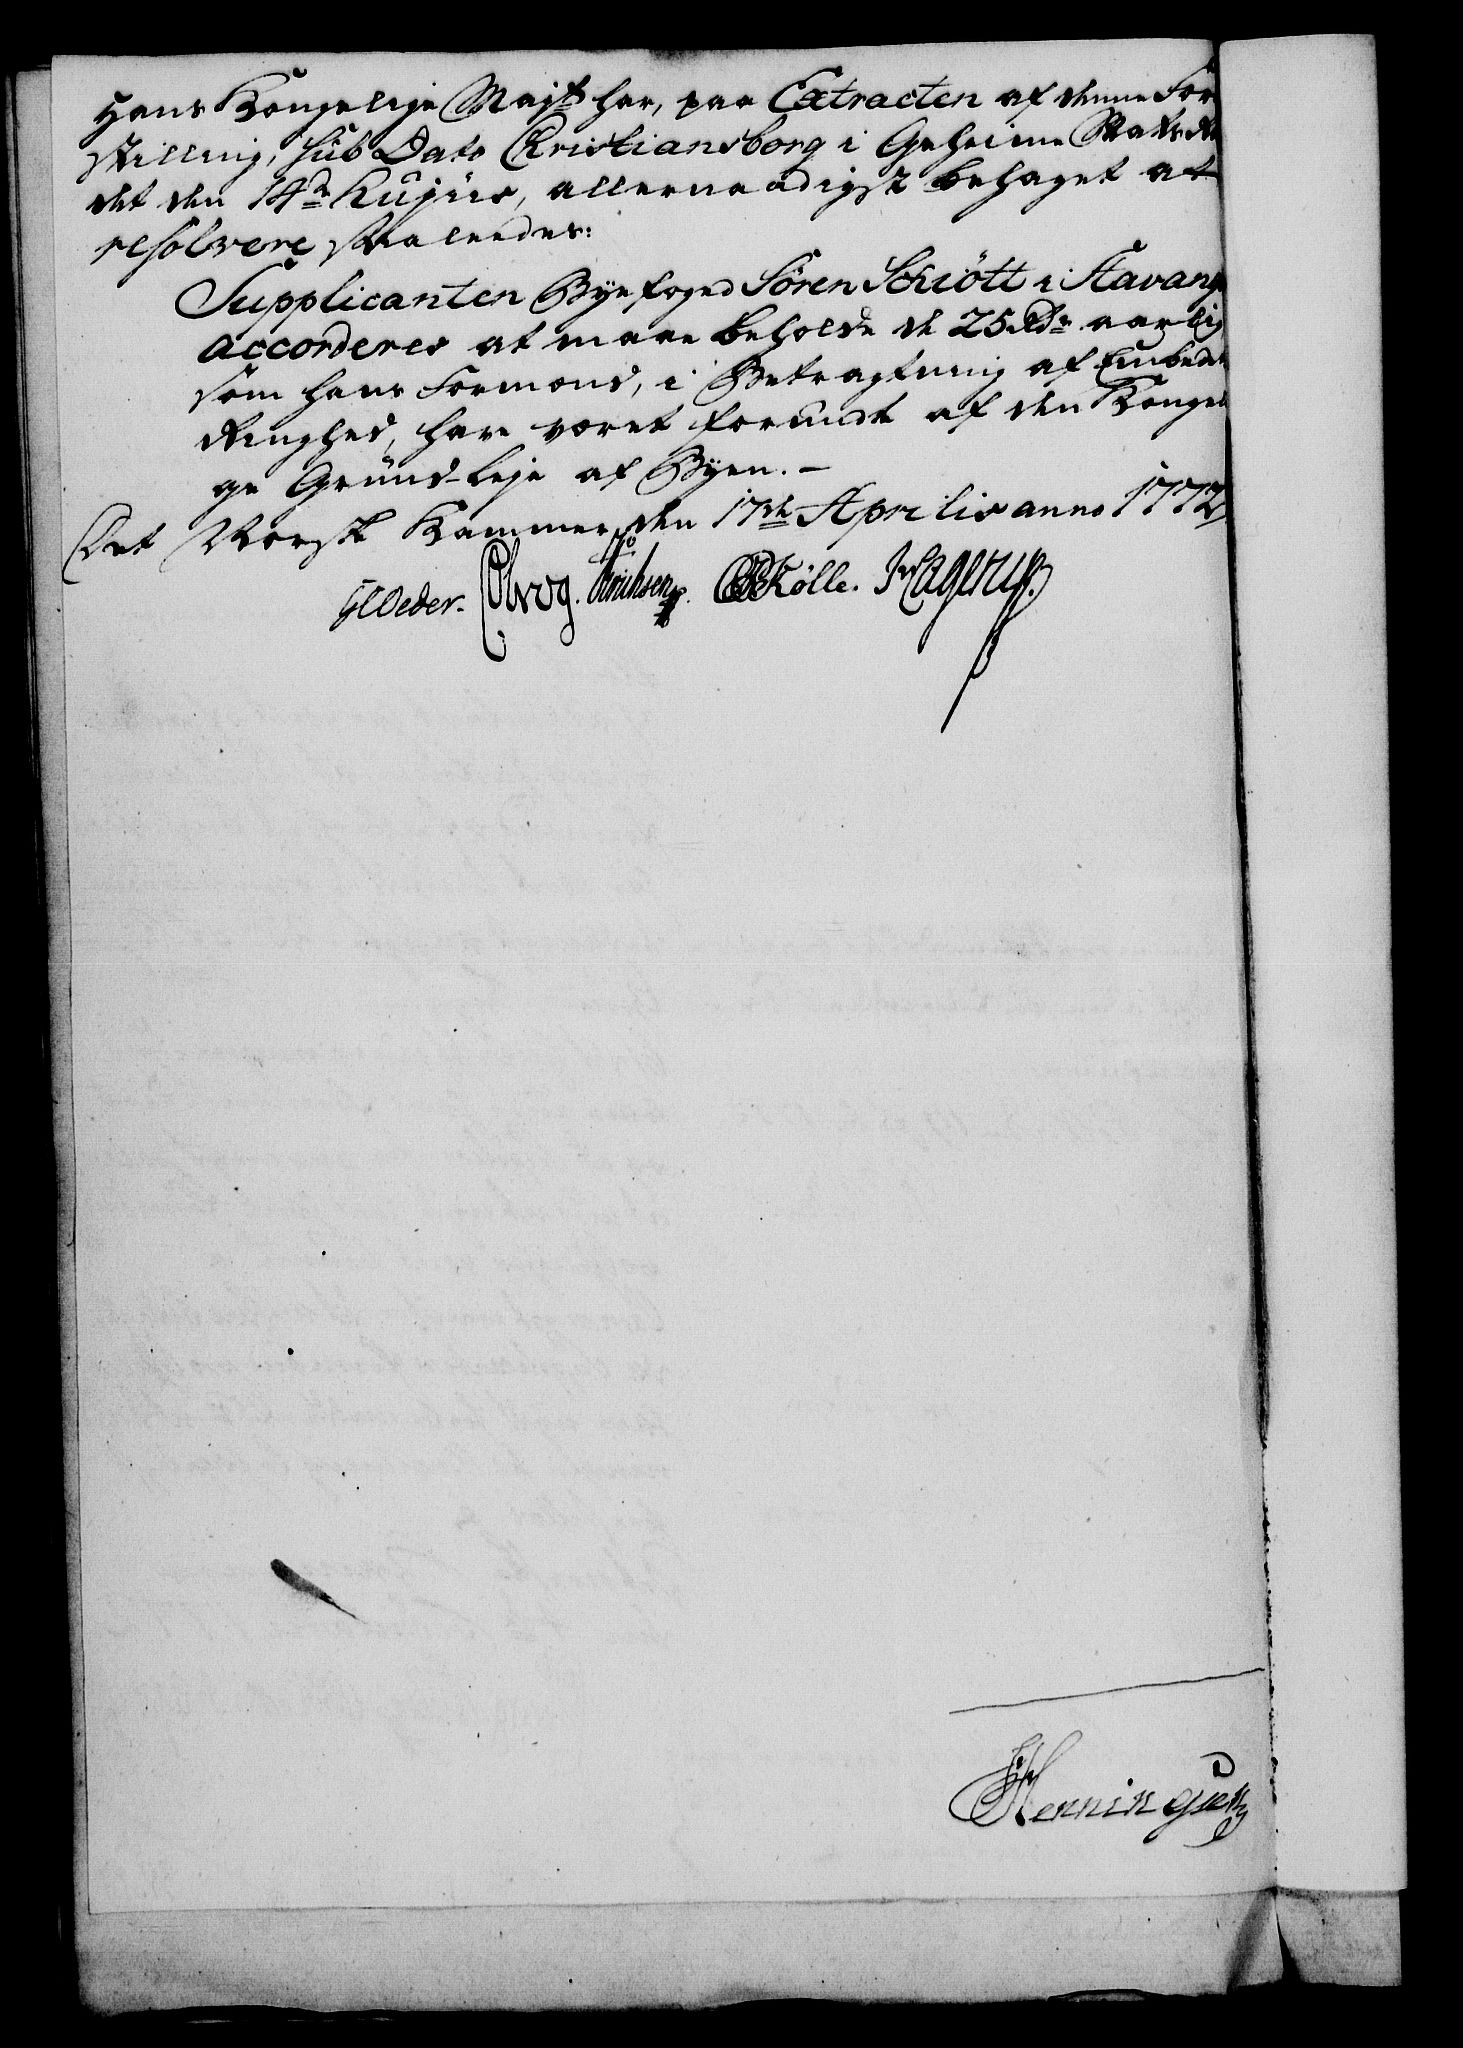 Hans Kongelige Maj:t har, paa Extracten af denne For
stilling, sub Dato Christiansborg i Geheime Stats Ra
det den 14de Hujus, allernaadigst behaget at
resolvere saaledes:
Supplicanten Byefoged Sören Schiött i Stavang
accorderes at maae beholde de 25 Rdr aarlig
som hans Formænd, i Betragtning af Embedets
Ringhed, have været forundt af den Kongel
ge Grund-Leje af Byen. –
Det Norske Kammer den 17de Aprilis anno 1772
GCOeder. Erichsen. Kölle. Hagerup.
Henningsen